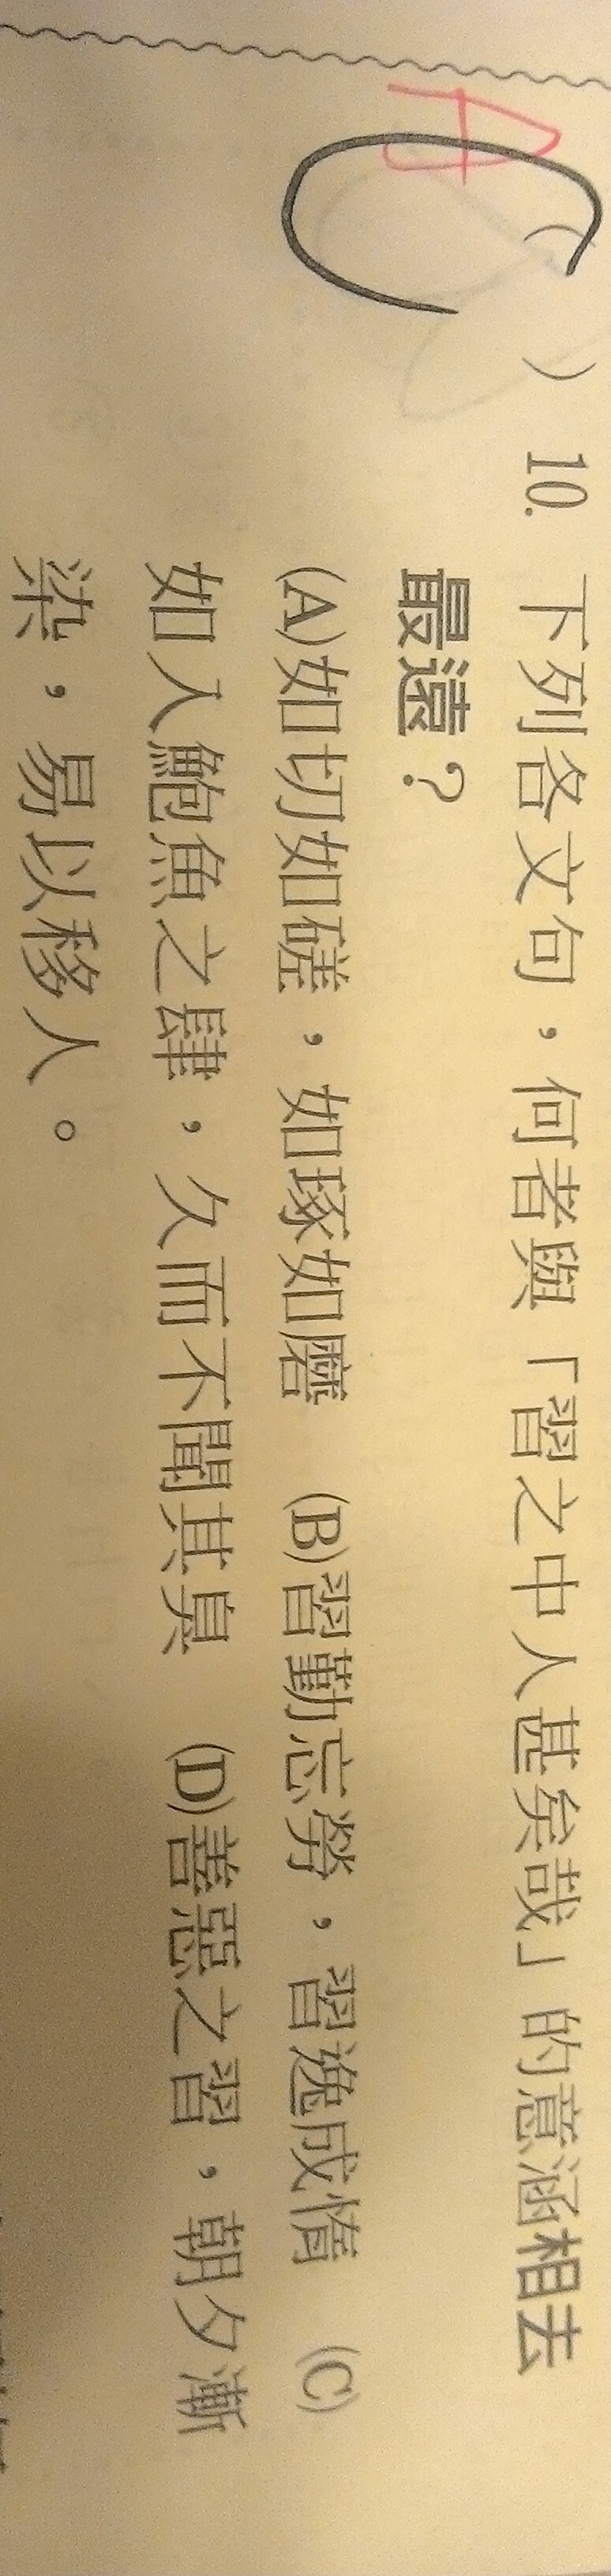 A
C
( ) 10. 下列各文句，何者與「習之中人甚矣哉」的意涵相去
最遠？
(A)如切如磋，如琢如磨 (B)習勤忘勞，習逸成惰 (C)
如入鮑魚之肆，久而不聞其臭 (D)善惡之習，朝夕漸
染，易以移人。